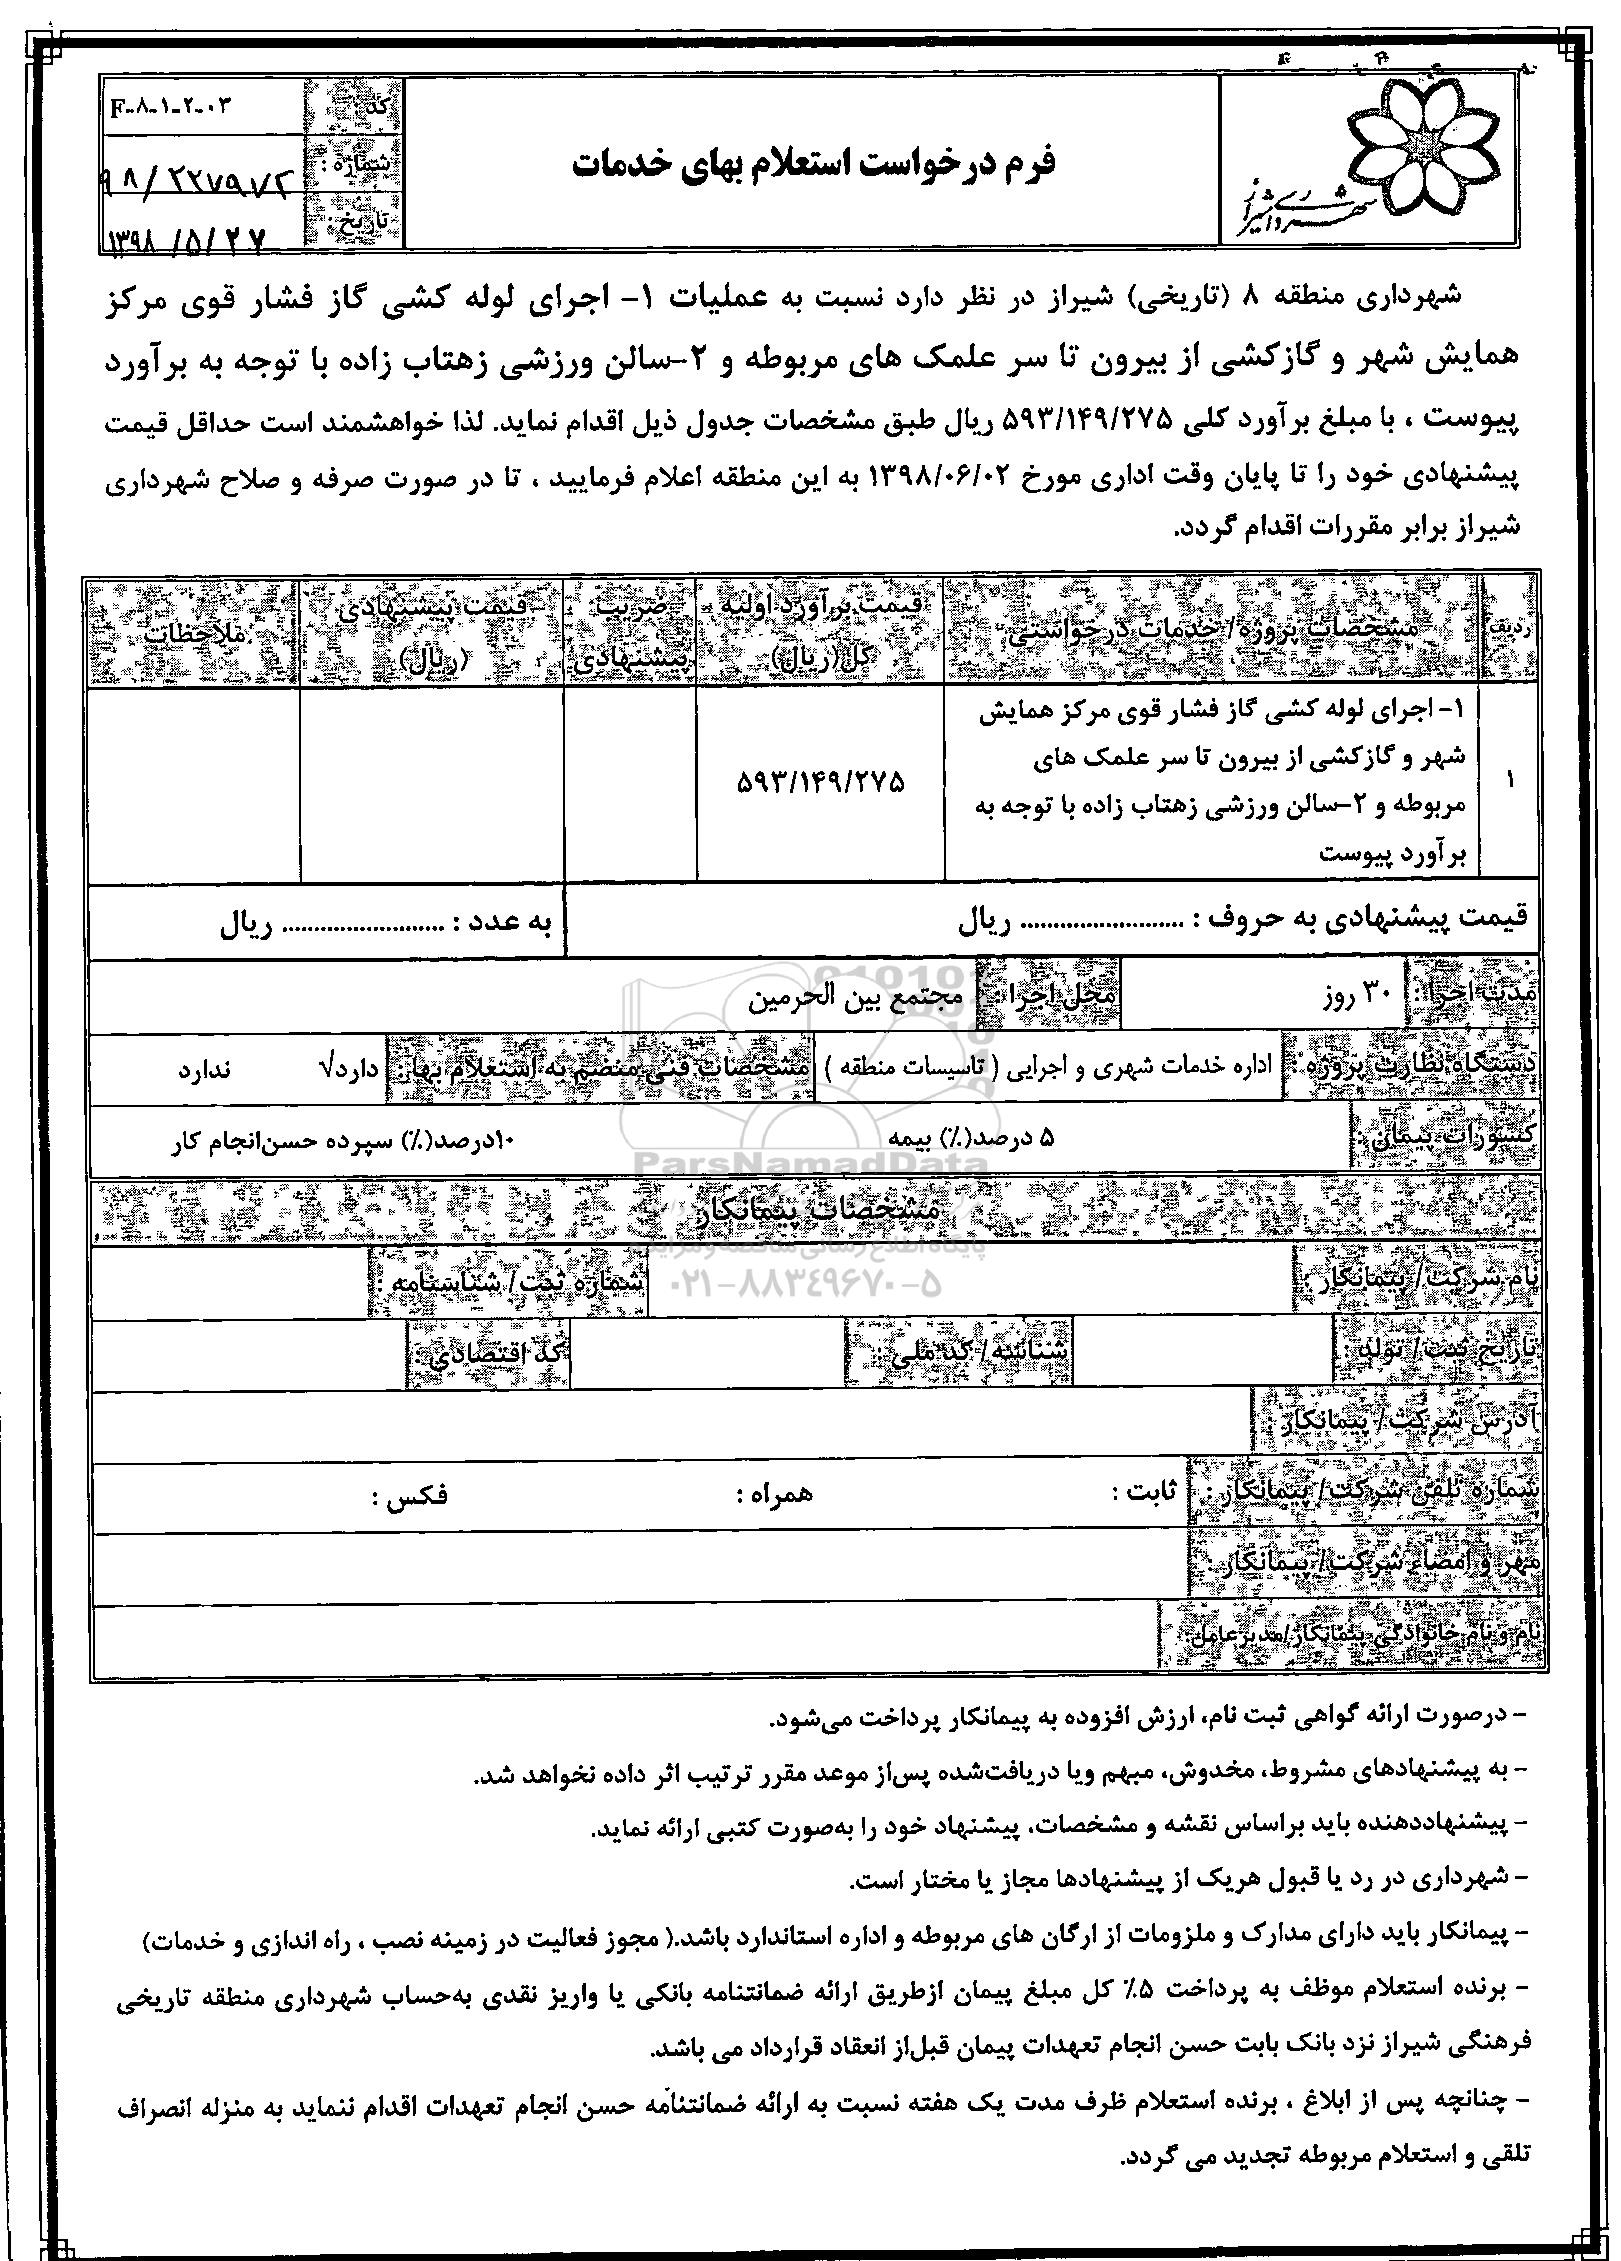 شهرداری شیراز
فرم درخواست استعلام بهای خدمات
کد :
F-۸-۱-۲-۰۳
شماره :
۹۸/۲۲۷۹۷۲
تاریخ :
۱۳۹۸/۵/۲۷
شهرداری منطقه ۸ (تاریخی) شیراز در نظر دارد نسبت به عملیات ۱- اجرای لوله کشی گاز فشار قوی مرکز
همایش شهر و گازکشی از بیرون تا سر علمک های مربوطه و ۲-سالن ورزشی زهتاب زاده با توجه به برآورد
پیوست ، با مبلغ برآورد کلی ۵۹۳/۱۴۹/۲۷۵ ریال طبق مشخصات جدول ذیل اقدام نماید. لذا خواهشمند است حداقل قیمت
پیشنهادی خود را تا پایان وقت اداری مورخ ۱۳۹۸/۰۶/۰۲ به این منطقه اعلام فرمایید ، تا در صورت صرفه و صلاح شهرداری
شیراز برابر مقررات اقدام گردد.
ردیف
مشخصات پروژه/ خدمات درخواستی
قیمت برآورد اولیه
کل(ریال)
ضریب
پیشنهادی
قیمت پیشنهادی
(ریال)
ملاحظات
۱
۱- اجرای لوله کشی گاز فشار قوی مرکز همایش
شهر و گازکشی از بیرون تا سر علمک های
مربوطه و ۲-سالن ورزشی زهتاب زاده با توجه به
برآورد پیوست
۵۹۳/۱۴۹/۲۷۵
قیمت پیشنهادی به حروف : ......................... ریال
به عدد : ......................... ریال
مدت اجرا : ۳۰ روز
محل اجرا : مجتمع بین الحرمین
دستگاه نظارت پروژه : اداره خدمات شهری و اجرایی ( تاسیسات منطقه )
مشخصات فنی منضم به استعلام بها : دارد√ ندارد
کسورات پیمان : ۵ درصد(٪) بیمه ۱۰درصد(٪) سپرده حسن‌انجام کار
ParsNamadData
مشخصات پیمانکار
پایگاه اطلاع رسانی مناقصه و مزایده
نام شرکت/ پیمانکار :
شماره ثبت/ شناسنامه :
۰۲۱-۸۸۳۴۹۶۷۰-۵
تاریخ ثبت/ تولد :
شناسه/ کد ملی :
کد اقتصادی :
آدرس شرکت/ پیمانکار :
شماره تلفن شرکت/ پیمانکار : ثابت : همراه : فکس :
مهر و امضاء شرکت/ پیمانکار :
نام و نام خانوادگی پیمانکار/مدیرعامل:
- درصورت ارائه گواهی ثبت نام، ارزش افزوده به پیمانکار پرداخت می‌شود.
- به پیشنهادهای مشروط، مخدوش، مبهم ویا دریافت‌شده پس‌از موعد مقرر ترتیب اثر داده نخواهد شد.
- پیشنهاددهنده باید براساس نقشه و مشخصات، پیشنهاد خود را به‌صورت کتبی ارائه نماید.
- شهرداری در رد یا قبول هریک از پیشنهادها مجاز یا مختار است.
- پیمانکار باید دارای مدارک و ملزومات از ارگان های مربوطه و اداره استاندارد باشد.( مجوز فعالیت در زمینه نصب ، راه اندازی و خدمات)
- برنده استعلام موظف به پرداخت ۵٪ کل مبلغ پیمان ازطریق ارائه ضمانتنامه بانکی یا واریز نقدی به‌حساب شهرداری منطقه تاریخی
فرهنگی شیراز نزد بانک بابت حسن انجام تعهدات پیمان قبل‌از انعقاد قرارداد می باشد.
- چنانچه پس از ابلاغ ، برنده استعلام ظرف مدت یک هفته نسبت به ارائه ضمانتنامه حسن انجام تعهدات اقدام ننماید به منزله انصراف
تلقی و استعلام مربوطه تجدید می گردد.